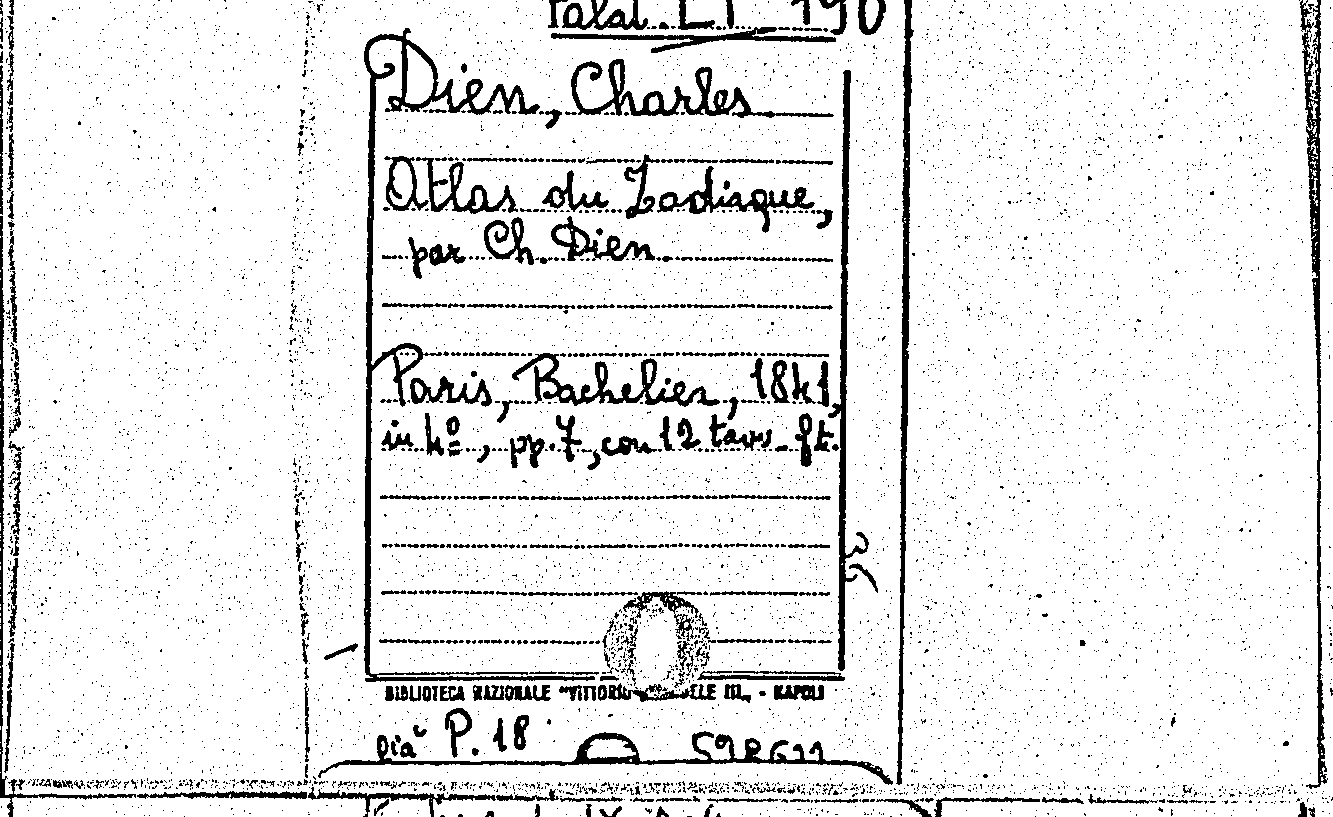 Palat. LI 190
Dien, Charles
Atlas du Zodiaque,
par Ch. Dien.
Paris, Bachelier, 1841,
in 4º, pp. 7, con 12 tavv. ft.
BIBLIOTECA NAZIONALE "VITTORIO EMANUELE III" - NAPOLI
già P. 18